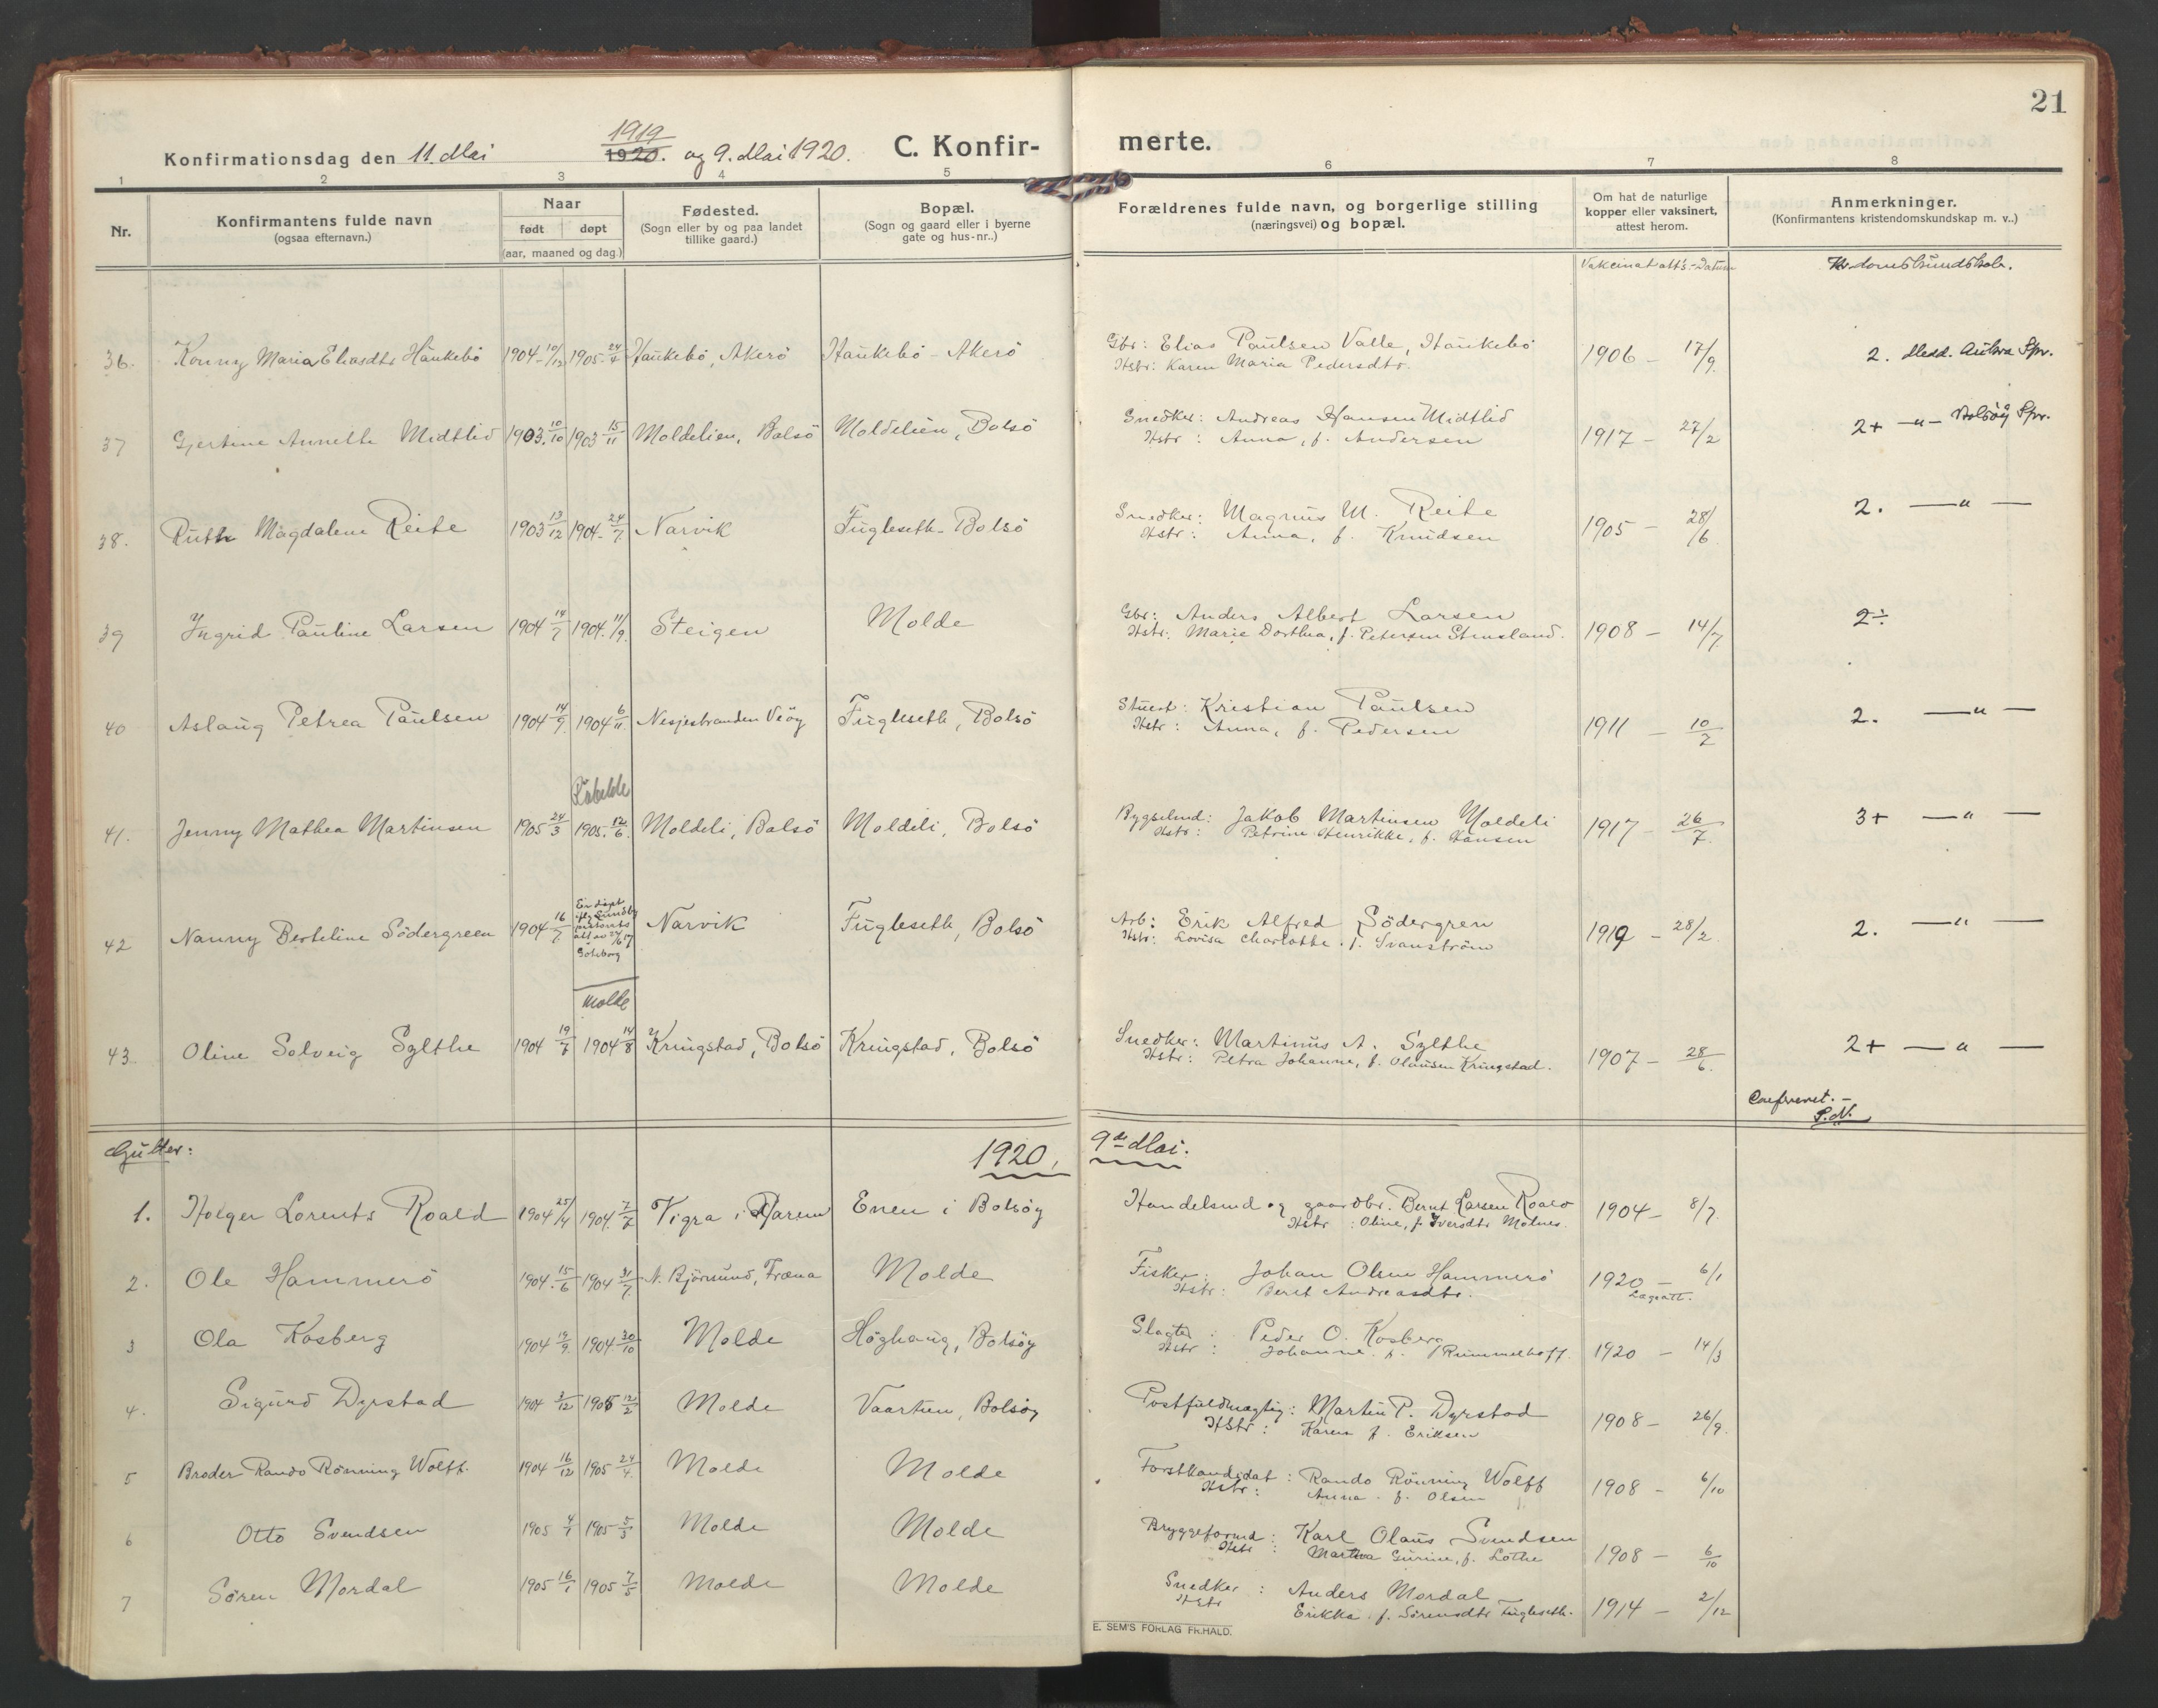 21
Konfirmationsdag den 11. Mai 1919 1920. og 9. Mai 1920. C. Konfirmerte.
1 2 3 4 5 6 7 8
Nr.
Konfirmantens fulde navn
(ogsaa efternavn.)
Naar
født døpt
(aar, maaned og dag.)
Fødested.
(Sogn eller by og paa landet
tillike gaard.)
Bopæl.
(Sogn og gaard eller i byerne
gate og hus-nr..)
Forældrenes fulde navn, og borgerlige stilling
(næringsvei) og bopæl.
Om hat de naturlige
kopper eller vaksinert,
attest herom.
Anmerkninger.
(Konfirmantens kristendomskundskap m. v..)
Vakcinat att's-Datum
Kr.domskundskab.
36. Konny Maria Eliasdtr Haukebö 1904-10/12 1905-24/4 Haukebö, Akerö Haukebö-Akerö Gbr: Elias Paulsen Valle, Haukebö 1906-17/9 2. Medd. Aukra Spr.
Hstr: Karen Maria Pedersdtr.
37 Gjertine Annette Midtlid 1903.10/10 1903 15/11 Moldelien, Bolsö Moldelien, Bolsö Snedker: Andreas Hansen Midtlid 1917-27/2 2+ -"- Bolsöy Spr.
Hstr: Anna, f. Andersen
38. Ruth Magdalene Reite 1903 13/12 1904-24/7 Narvik Fugleseth-Bolsö Snedker: Magnus M. Reite 1905-28/6 2. -"-
Hstr: Anna, f. Knudsen
39 Ingrid Pauline Larsen 1904 14/7 1904.11/9 Steigen Molde Gbr: Anders Albert Larsen 1908-14/7 2÷
Hstr: Marie Dorthea, f. Petersen
40 Aslaug Petrea Paulsen 1904 14/9 1904 6/11 Nesjestranden Veöy Fugleseth, Bolsö Stuert: Kristian Paulsen 1911-10/2 2. -"-
Hstr: Anna, f. Pedersen
41. Jenny Mathea Martinsen 1905 24/3 1905.12/6. Moldeli, Bolsö Moldeli, Bolsö Bygselmd: Jakob Martinsen Moldeli 1917-26/7 3+ -"-
Hstr: Petrine Henrikke, f. Hansen
42 Nanny Berteline Södergreen 1904 16/7 Er döpt Göteborg Narvik Fugleseth, Bolsö Arb: Erik Alfred Södergren 1919-28/2 2. -"-
Hstr: Lovisa Charlotte. f. Svanström
Molde
43. Oline Solveig Sylthe 1904 19/7 1904 14/8 Kringstad, Bolsö Kringstad, Bolsö Snedker: Martinus A. Sylthe 1907-28/6. 2+ -"-
Hstr: Petra Johanne, f. Olausen Kringstad.
Confereret.-
S.N.
Gutter: 1920, 9de Mai.
1. Holger Lorents Roald 1904 25/4 1904.7/7 Vigra i Haram Enen i Bolsöy Handelsmd og gaardbr. Bernt Larsen Roald 1904-8/7.
Hstr: Oline, f. Iversdtr Molnes.
2. Ole Hammerö 1904.15/6 1904 31/7 N. Björnsund, Fræna Molde Fisker: Johan Olsen Hammerö 1920-6/1
Hstr: Berit Andreasdtr. Lægeatt.
3 Ola Kosberg 1904 19/9. 1904 30/10 Molde Höghaug, Bolsöy Slagter: Peder O. Kosberg 1920-14/3
Hstr: Johanne. f. Rummelhoff.
4. Sigurd Dyrstad 1904 3/12 1905 12/2 Molde Vaartun, Bolsöy Postfuldmægtig: Martin P. Dyrstad 1908-26/9.
Hstr: Karen f. Eriksen
5 Broder Rando Rönning Wolff. 1904 16/12 1905 24/4. Molde Molde Forstkandidat: Rando Rönning Wolff 1908-6/10
Hstr: Anna. f. Olsen
6 Otto Svendsen 1905 4/1 1905 5/3 Molde Molde Bryggeformd: Karl Olaus Svendsen 1908-6/10
Hstr: Martha Gurine, f. Löthe
7 Sören Mordal 1905 16/1 1905 7/5 Molde Molde Snedker: Anders Mordal 1914-2/12
Hstr Erikka. f. Sörensdtr Fugleseth.
E. SEM'S FORLAG FR.HALD.